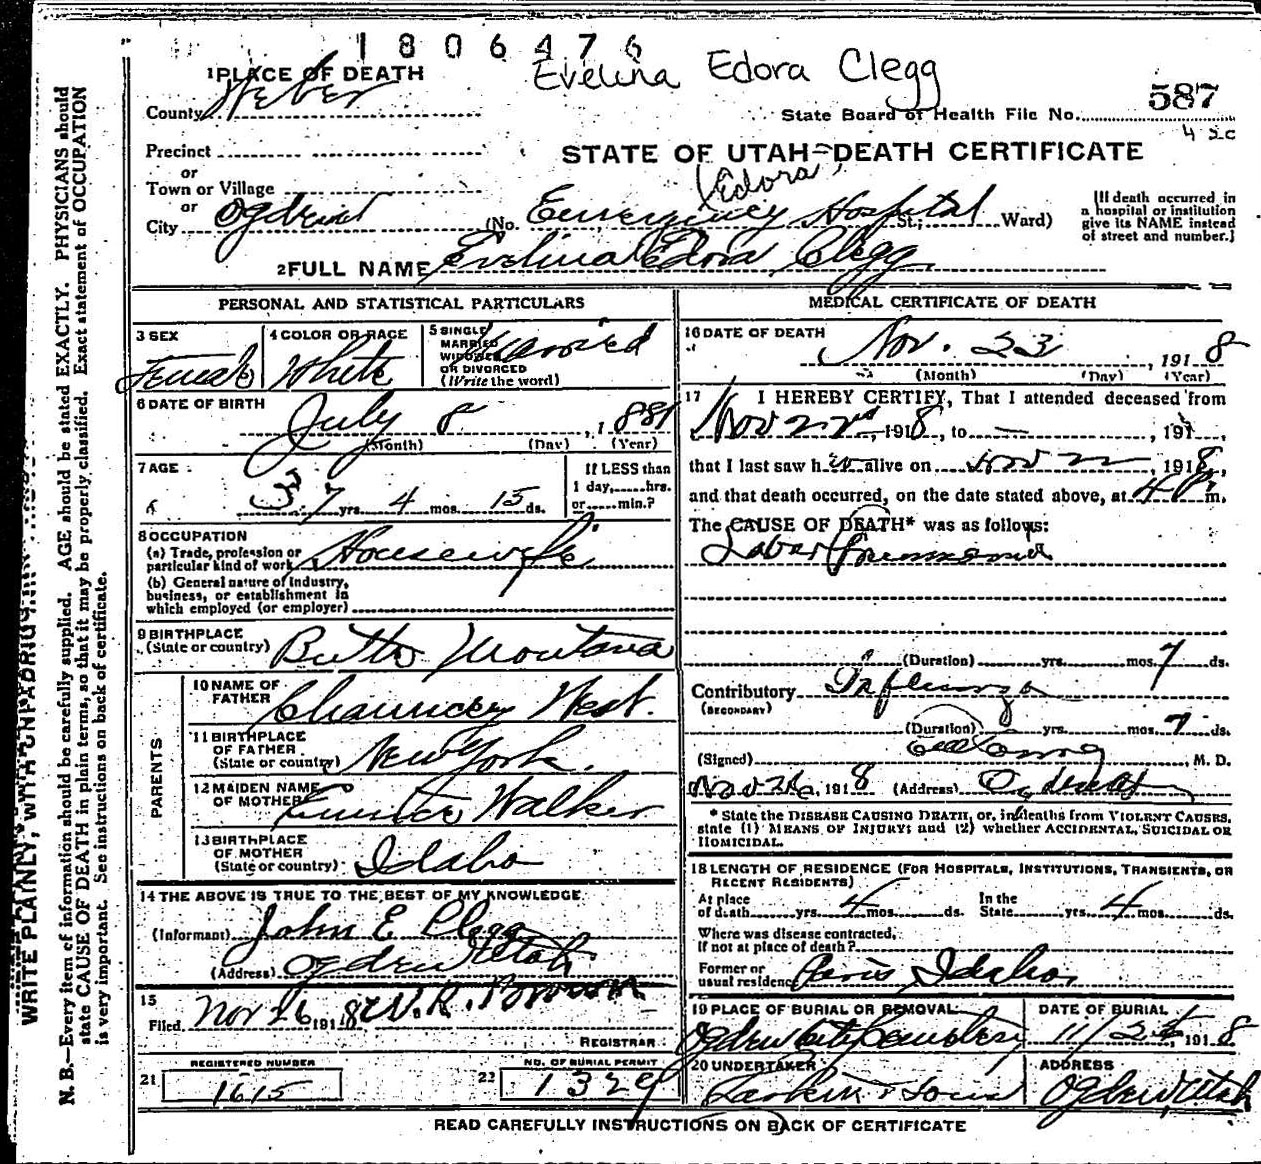 1806476
Evelina Edora Clegg
1 PLACE OF DEATH
County Weber
State Board of Health File No. 587
Precinct
or
STATE OF UTAH—DEATH CERTIFICATE
Town or Village
(Edora)
or
City Ogden (No. Emergency Hospital St.; Ward)
[If death occurred in
a hospital or institution
give its NAME instead
of street and number.]
2 FULL NAME Evelina Edora Clegg
PERSONAL AND STATISTICAL PARTICULARS
3 SEX Female
4 COLOR OR RACE White
5 SINGLE
MARRIED
WIDOWED
OR DIVORCED
(Write the word) Married
6 DATE OF BIRTH
July 8, 1881
(Month) (Day) (Year)
7 AGE
37 yrs. 4 mos. 15 ds.
If LESS than
1 day,......hrs.
or......min.?
8 OCCUPATION
(a) Trade, profession or
particular kind of work Housewife
(b) General nature of industry,
business, or establishment in
which employed (or employer)
9 BIRTHPLACE
(State or country) Butte Montana
PARENTS
10 NAME OF
FATHER Chauncey West.
11 BIRTHPLACE
OF FATHER
(State or country) New York.
12 MAIDEN NAME
OF MOTHER Walker
13 BIRTHPLACE
OF MOTHER
(State or country) Idaho
14 THE ABOVE IS TRUE TO THE BEST OF MY KNOWLEDGE
(Informant) John E Clegg
(Address) Ogden Utah
15
Filed Nov 26 1918
REGISTRAR
REGISTERED NUMBER
21 1615
NO. OF BURIAL PERMIT
22 1329
MEDICAL CERTIFICATE OF DEATH
16 DATE OF DEATH
Nov. 23, 1918
(Month) (Day) (Year)
17 I HEREBY CERTIFY, That I attended deceased from
Nov 22nd, 1918, to — , 191 ,
that I last saw her alive on Nov 22, 1918,
and that death occurred, on the date stated above, at 4 P m.
The CAUSE OF DEATH* was as follows:
Lobar Pneumonia
(Duration) yrs. mos. 7 ds.
Contributory Influenza
(SECONDARY)
(Duration) yrs. mos. 7 ds.
(Signed) M. D.
Nov 26, 1918 (Address) Ogden Utah
* State the DISEASE CAUSING DEATH, or, in deaths from VIOLENT CAUSES,
state (1) MEANS OF INJURY; and (2) whether ACCIDENTAL, SUICIDAL OR
HOMICIDAL.
18 LENGTH OF RESIDENCE (FOR HOSPITALS, INSTITUTIONS, TRANSIENTS, OR
RECENT RESIDENTS)
At place
of death yrs. 4 mos. ds. In the
State yrs. 4 mos. ds.
Where was disease contracted,
if not at place of death?
Former or
usual residence Paris Idaho,
19 PLACE OF BURIAL OR REMOVAL
Ogden City Cemetery
DATE OF BURIAL
1918
20 UNDERTAKER
Larkin & Sons
ADDRESS
Ogden, Utah
READ CAREFULLY INSTRUCTIONS ON BACK OF CERTIFICATE
N. B.—Every item of information should be carefully supplied. AGE should be stated EXACTLY. PHYSICIANS should
state CAUSE OF DEATH in plain terms, so that it may be properly classified. Exact statement of OCCUPATION
is very important. See instructions on back of certificate.
WRITE PLAINLY, WITH UNFADING INK